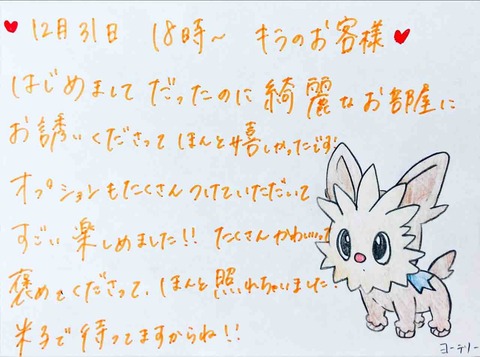 ♥12月31日 18時~ キラのお客様♥
はじめましてだったのに綺麗なお部屋に
お誘いくださってほんと嬉しかったです!
オプションもたくさんつけていただいて
すごい楽しめました!! たくさんかわいいって
褒めてくださって、ほんと照れちゃいました!
待ってますからね!!
ヨーテリー